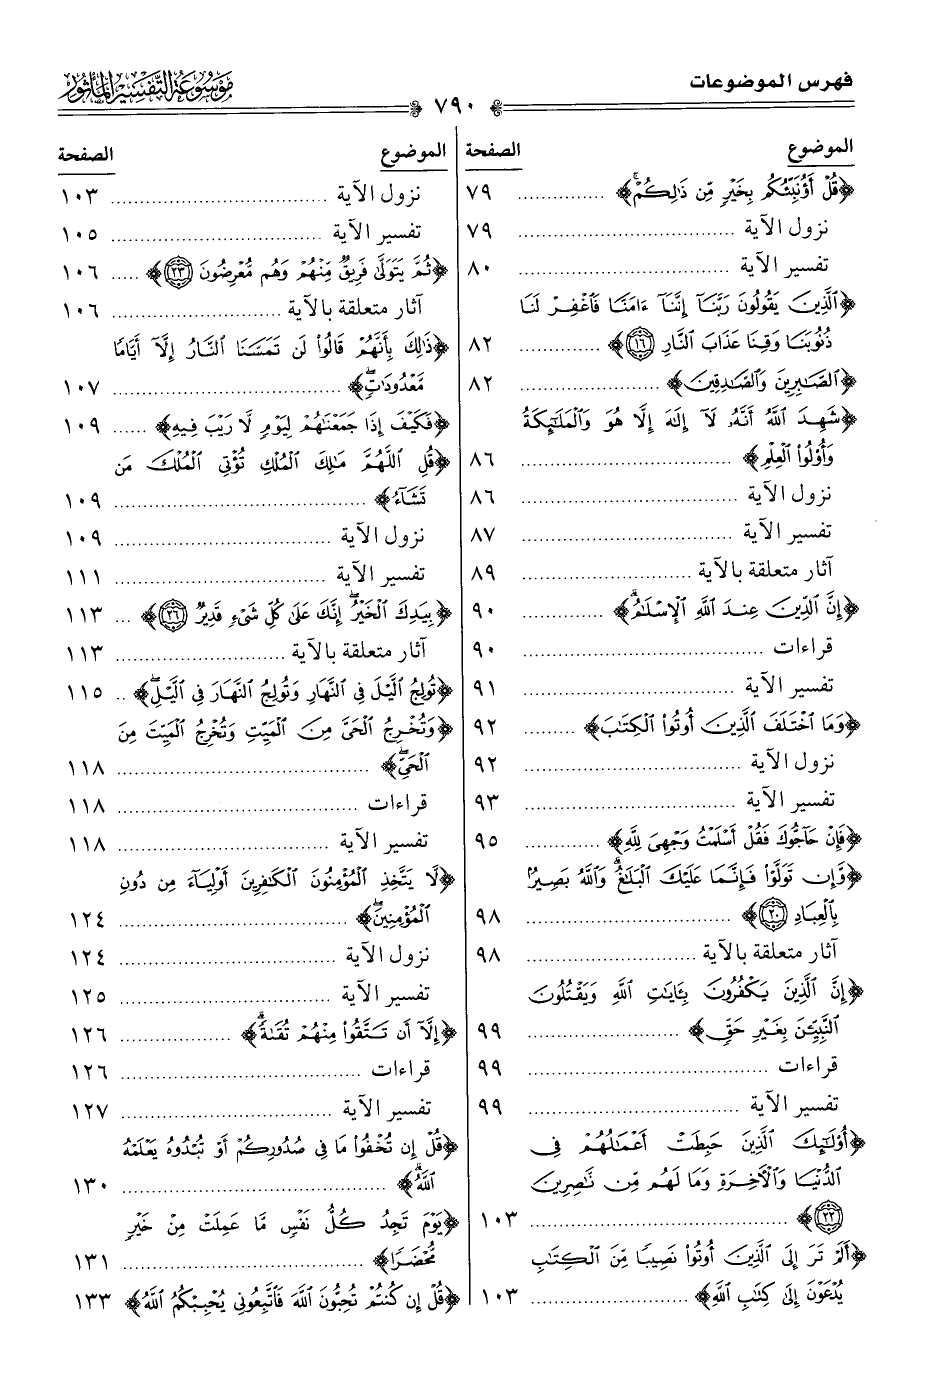 فهرس الموضوعات
٧٩٠
موسوعة التفسير المأثور
الموضوع الصفحة
﴿قُلْ أَؤُنَبِّئُكُم بِخَيْرٍ مِّن ذَٰلِكُمْ﴾ ............... ٧٩
نزول الآية ............... ٧٩
تفسير الآية ............... ٨٠
﴿ٱلَّذِينَ يَقُولُونَ رَبَّنَآ إِنَّنَآ ءَامَنَّا فَٱغْفِرْ لَنَا
ذُنُوبَنَا وَقِنَا عَذَابَ ٱلنَّارِ ١٦﴾ ............... ٨٢
﴿ٱلصَّٰبِرِينَ وَٱلصَّٰدِقِينَ﴾ ............... ٨٢
﴿شَهِدَ ٱللَّهُ أَنَّهُۥ لَآ إِلَٰهَ إِلَّا هُوَ وَٱلْمَلَٰٓئِكَةُ
وَأُوْلُواْ ٱلْعِلْمِ﴾ ............... ٨٦
نزول الآية ............... ٨٦
تفسير الآية ............... ٨٧
آثار متعلقة بالآية ............... ٨٩
﴿إِنَّ ٱلدِّينَ عِندَ ٱللَّهِ ٱلْإِسْلَٰمُ﴾ ............... ٩٠
قراءات ............... ٩٠
تفسير الآية ............... ٩١
﴿وَمَا ٱخْتَلَفَ ٱلَّذِينَ أُوتُواْ ٱلْكِتَٰبَ﴾ ............... ٩٢
نزول الآية ............... ٩٢
تفسير الآية ............... ٩٣
﴿فَإِنْ حَآجُّوكَ فَقُلْ أَسْلَمْتُ وَجْهِىَ لِلَّهِ﴾ ............... ٩٥
﴿وَّإِن تَوَلَّوْاْ فَإِنَّمَا عَلَيْكَ ٱلْبَلَٰغُ وَٱللَّهُ بَصِيرٌۢ
بِٱلْعِبَادِ ٢٠﴾ ............... ٩٨
آثار متعلقة بالآية ............... ٩٨
﴿إِنَّ ٱلَّذِينَ يَكْفُرُونَ بِـَٔايَٰتِ ٱللَّهِ وَيَقْتُلُونَ
ٱلنَّبِيِّـۧنَ بِغَيْرِ حَقٍّ﴾ ............... ٩٩
قراءات ............... ٩٩
تفسير الآية ............... ٩٩
﴿أُوْلَٰٓئِكَ ٱلَّذِينَ حَبِطَتْ أَعْمَٰلُهُمْ فِى
ٱلدُّنْيَا وَٱلْأَخِرَةِ وَمَا لَهُم مِّن نَّٰصِرِينَ
٢٢﴾ ............... ١٠٣
﴿أَلَمْ تَرَ إِلَى ٱلَّذِينَ أُوتُواْ نَصِيبًا مِّنَ ٱلْكِتَٰبِ
يُدْعَوْنَ إِلَىٰ كِتَٰبِ ٱللَّهِ﴾ ............... ١٠٣
الموضوع الصفحة
نزول الآية ............... ١٠٣
تفسير الآية ............... ١٠٥
﴿ثُمَّ يَتَوَلَّىٰ فَرِيقٌ مِّنْهُمْ وَهُم مُّعْرِضُونَ ٢٣﴾ ..... ١٠٦
آثار متعلقة بالآية ............... ١٠٦
﴿ذَٰلِكَ بِأَنَّهُمْ قَالُواْ لَن تَمَسَّنَا ٱلنَّارُ إِلَّآ أَيَّامًا
مَّعْدُودَٰتٍ﴾ ............... ١٠٧
﴿فَكَيْفَ إِذَا جَمَعْنَٰهُمْ لِيَوْمٍ لَّا رَيْبَ فِيهِ﴾ ...... ١٠٩
﴿قُلِ ٱللَّهُمَّ مَٰلِكَ ٱلْمُلْكِ تُؤْتِى ٱلْمُلْكَ مَن
تَشَآءُ﴾ ............... ١٠٩
نزول الآية ............... ١٠٩
تفسير الآية ............... ١١١
﴿بِيَدِكَ ٱلْخَيْرُ إِنَّكَ عَلَىٰ كُلِّ شَىْءٍ قَدِيرٌ ٢٦﴾ ... ١١٣
آثار متعلقة بالآية ............... ١١٣
﴿تُولِجُ ٱلَّيْلَ فِى ٱلنَّهَارِ وَتُولِجُ ٱلنَّهَارَ فِى ٱلَّيْلِ﴾ .. ١١٥
﴿وَتُخْرِجُ ٱلْحَىَّ مِنَ ٱلْمَيِّتِ وَتُخْرِجُ ٱلْمَيِّتَ مِنَ
ٱلْحَىِّ﴾ ............... ١١٨
قراءات ............... ١١٨
تفسير الآية ............... ١١٨
﴿لَّا يَتَّخِذِ ٱلْمُؤْمِنُونَ ٱلْكَٰفِرِينَ أَوْلِيَآءَ مِن دُونِ
ٱلْمُؤْمِنِينَ﴾ ............... ١٢٤
نزول الآية ............... ١٢٤
تفسير الآية ............... ١٢٥
﴿إِلَّآ أَن تَتَّقُواْ مِنْهُمْ تُقَىٰةً﴾ ............... ١٢٦
قراءات ............... ١٢٦
تفسير الآية ............... ١٢٧
﴿قُلْ إِن تُخْفُواْ مَا فِى صُدُورِكُمْ أَوْ تُبْدُوهُ يَعْلَمْهُ
ٱللَّهُ﴾ ............... ١٣٠
﴿يَوْمَ تَجِدُ كُلُّ نَفْسٍ مَّا عَمِلَتْ مِنْ خَيْرٍ
مُّحْضَرًا﴾ ............... ١٣١
﴿قُلْ إِن كُنتُمْ تُحِبُّونَ ٱللَّهَ فَٱتَّبِعُونِى يُحْبِبْكُمُ ٱللَّهُ﴾ ١٣٣